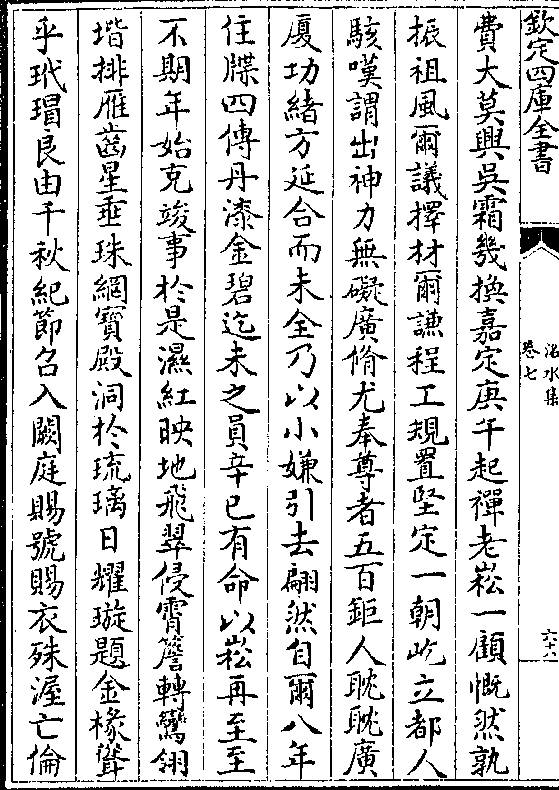 欽定四庫全書
洺水集
卷七
六十八
費大莫興吳霜幾換嘉定庚午起禪老崧一顧慨然孰
振祖風爾議擇材爾謙程工規置堅定一朝屹立都人
駭嘆謂出神力無礙廣脩尤奉尊者五百鉅人耽耽廣
廈功緒方延合而未全乃以小嫌引去翩然自爾八年
住牒四傳丹漆金碧迄未之員辛巳有命以崧再至至
不期年始克竣事於是濕紅映地飛翠侵霄簷轉鸞翎
堦排雁齒星垂珠網寶殿洞於琉璃日耀璇題金椽聳
乎玳瑁良由千秋紀節召入闕庭賜號賜衣殊渥亡倫